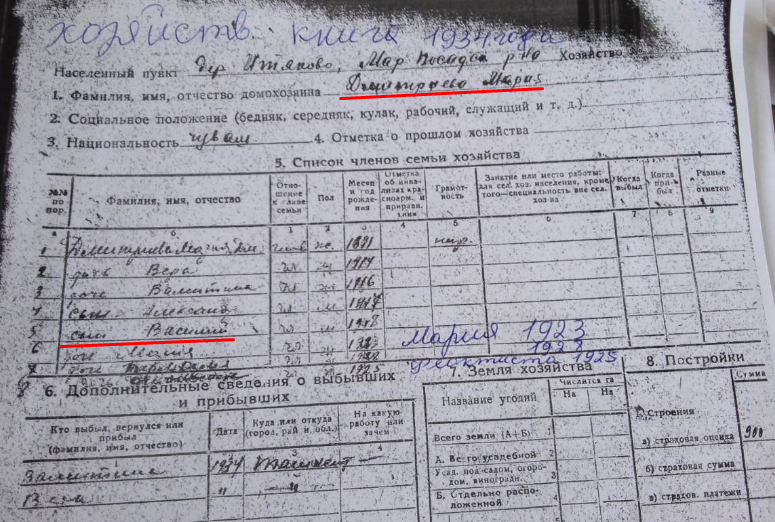 хозяйств. книга 1934 года
Населенный пункт дер Итяково, Мар Посадск р-на Хозяйство №
1. Фамилия, имя, отчество домохозяина Дмитриева Мария
2. Социальное положение (бедняк, середняк, кулак, рабочий, служащий и т. д.)
3. Национальность чуваш 4. Отметка о прошлом хозяйства
5. Список членов семьи хозяйства
№№ по пор. Фамилия, имя, отчество Отношение к главе семьи Пол Месяц и год рождения Отметка об инвалидах Грамотность Занятие или место работы: для сел. хоз. населения, кроме того—специальность вне сел. хоз-ва Когда выбыл Когда прибыл Разные отметки
а б 1 2 3 4 5 6 7 8 9
1 Дмитриева Мария ж. 1891 негр.
2 дочь Вера чл ж 1914
3 дочь Валентина чл ж 1916
4 сын Александр чл м 1917
5 сын Василий чл м 1918
6 дочь Мария чл
Мария 1923
7 дочь чл 1928
1928
8 1925
Феоктиста 1925
6. Дополнительные сведения о выбывших и прибывших
Кто выбыл, вернулся или прибыл (фамилия, имя, отчество) Дата Куда или откуда (город, рай и обл.) На какую работу или зачем
1 2 3 4
Валентина 1934 Ташкент
Вера " — " —
7. Земля хозяйства
Название угодий Числится га
На На
Всего земли (А+Б) 1
А. Всего усадебной 2
Усад. под садом, огородом, виноградн. 3
Б. Отдельно расположенной 4
8. Постройки
Сумма
Строения
а) страховая оценка 900
б) страховая сумма
в) страхов. платежи